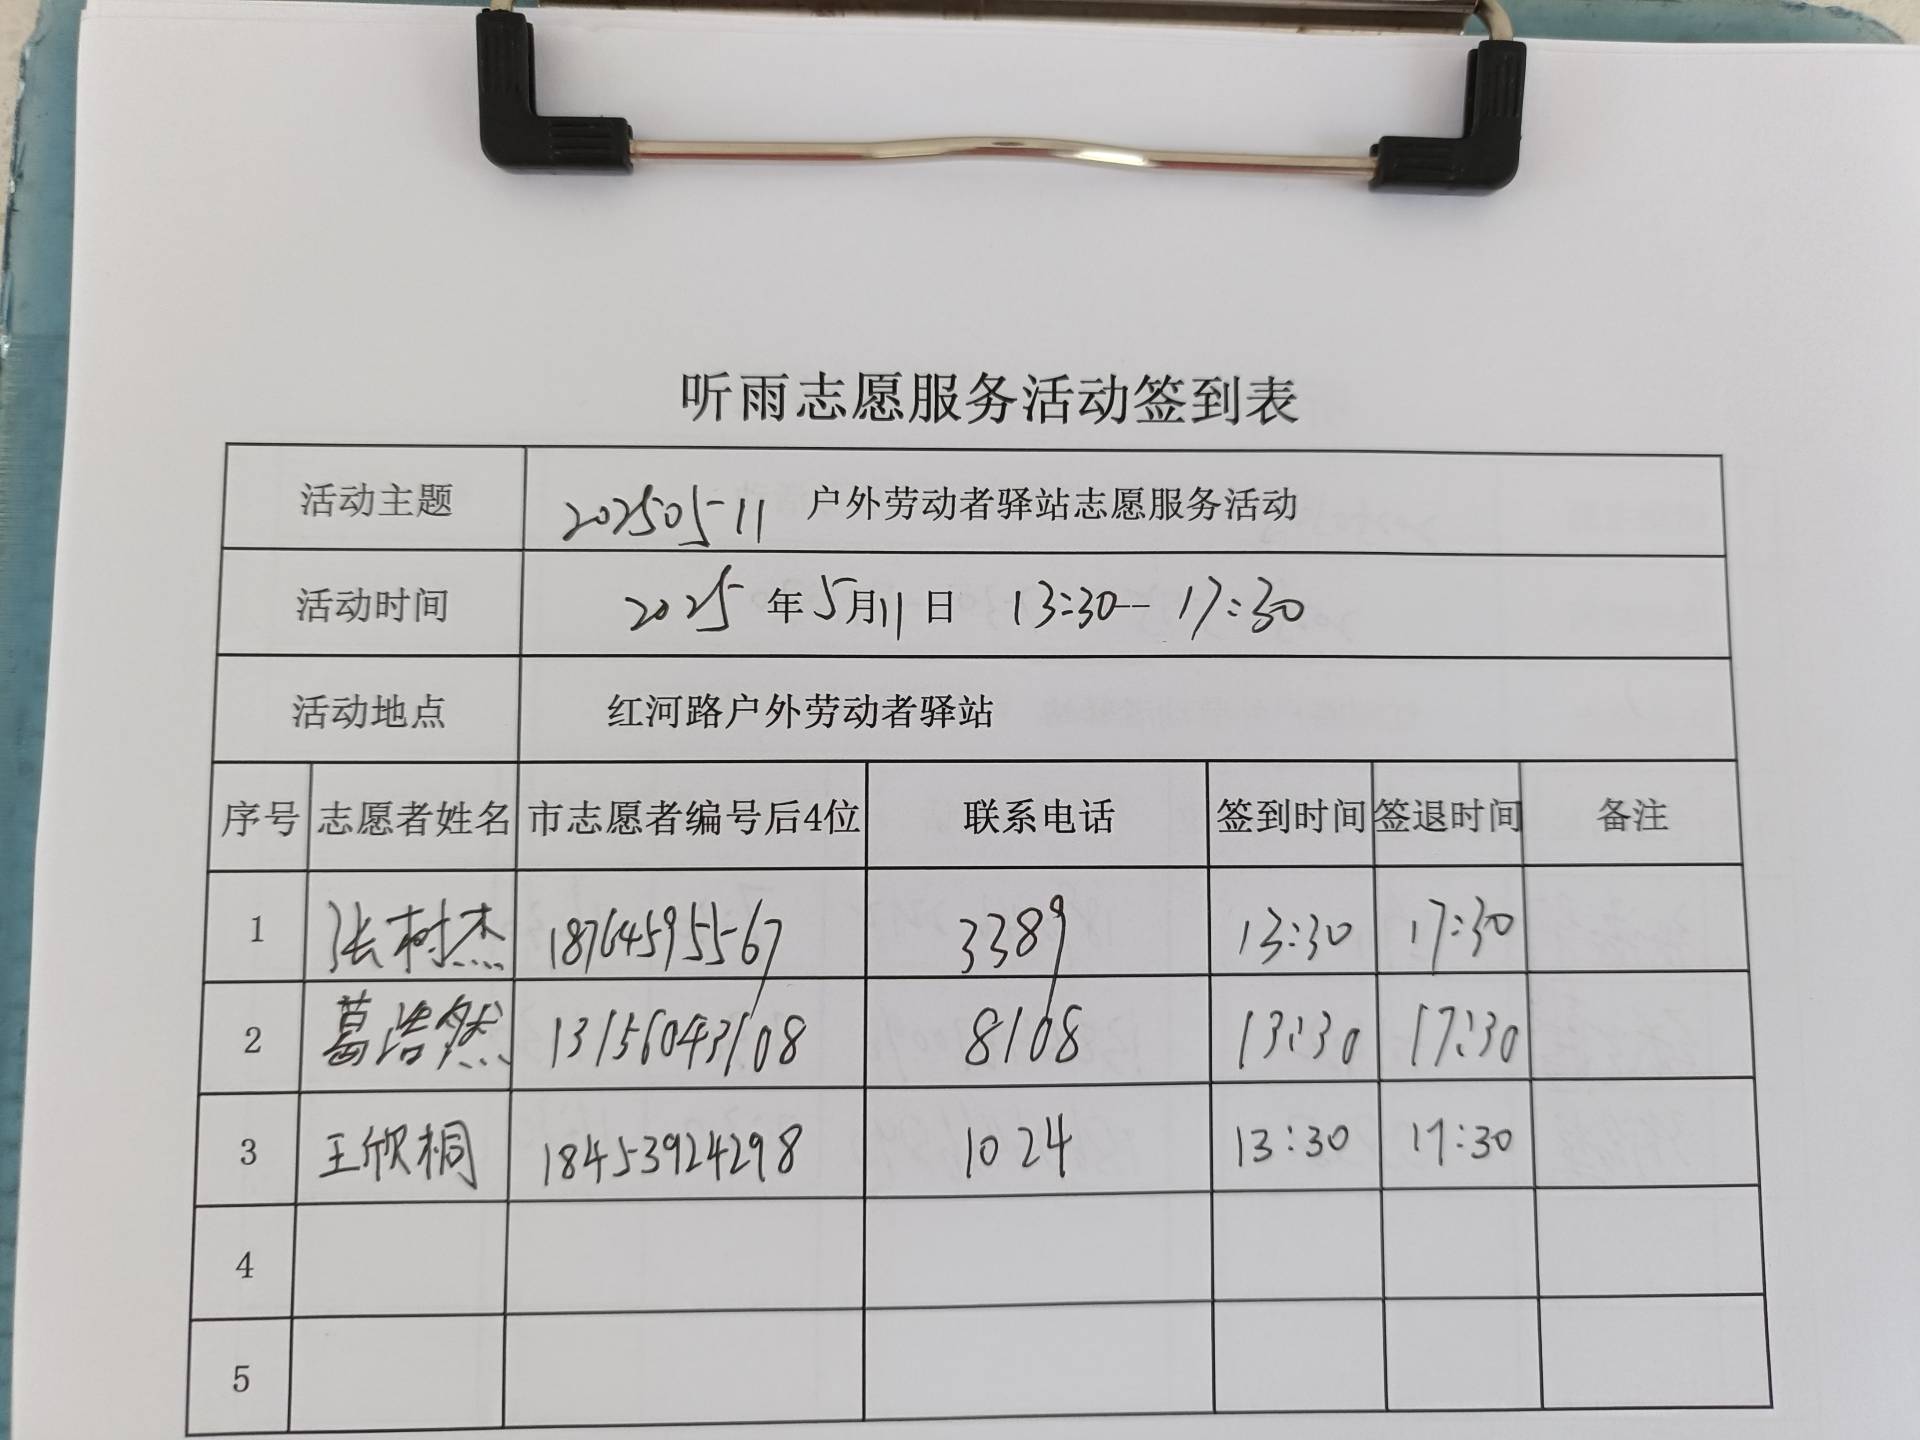 听雨志愿服务活动签到表
活动主题 20250511 户外劳动者驿站志愿服务活动
活动时间 2025年5月11日 13:30-- 17:30
活动地点 红河路户外劳动者驿站
序号 志愿者姓名 市志愿者编号后4位 联系电话 签到时间 签退时间 备注
1 张树杰 18764595567 3389 13:30 17:30
2 葛浩然 13156043108 8108 13:30 17:30
3 王欣桐 18453924298 1024 13:30 17:30
4
5